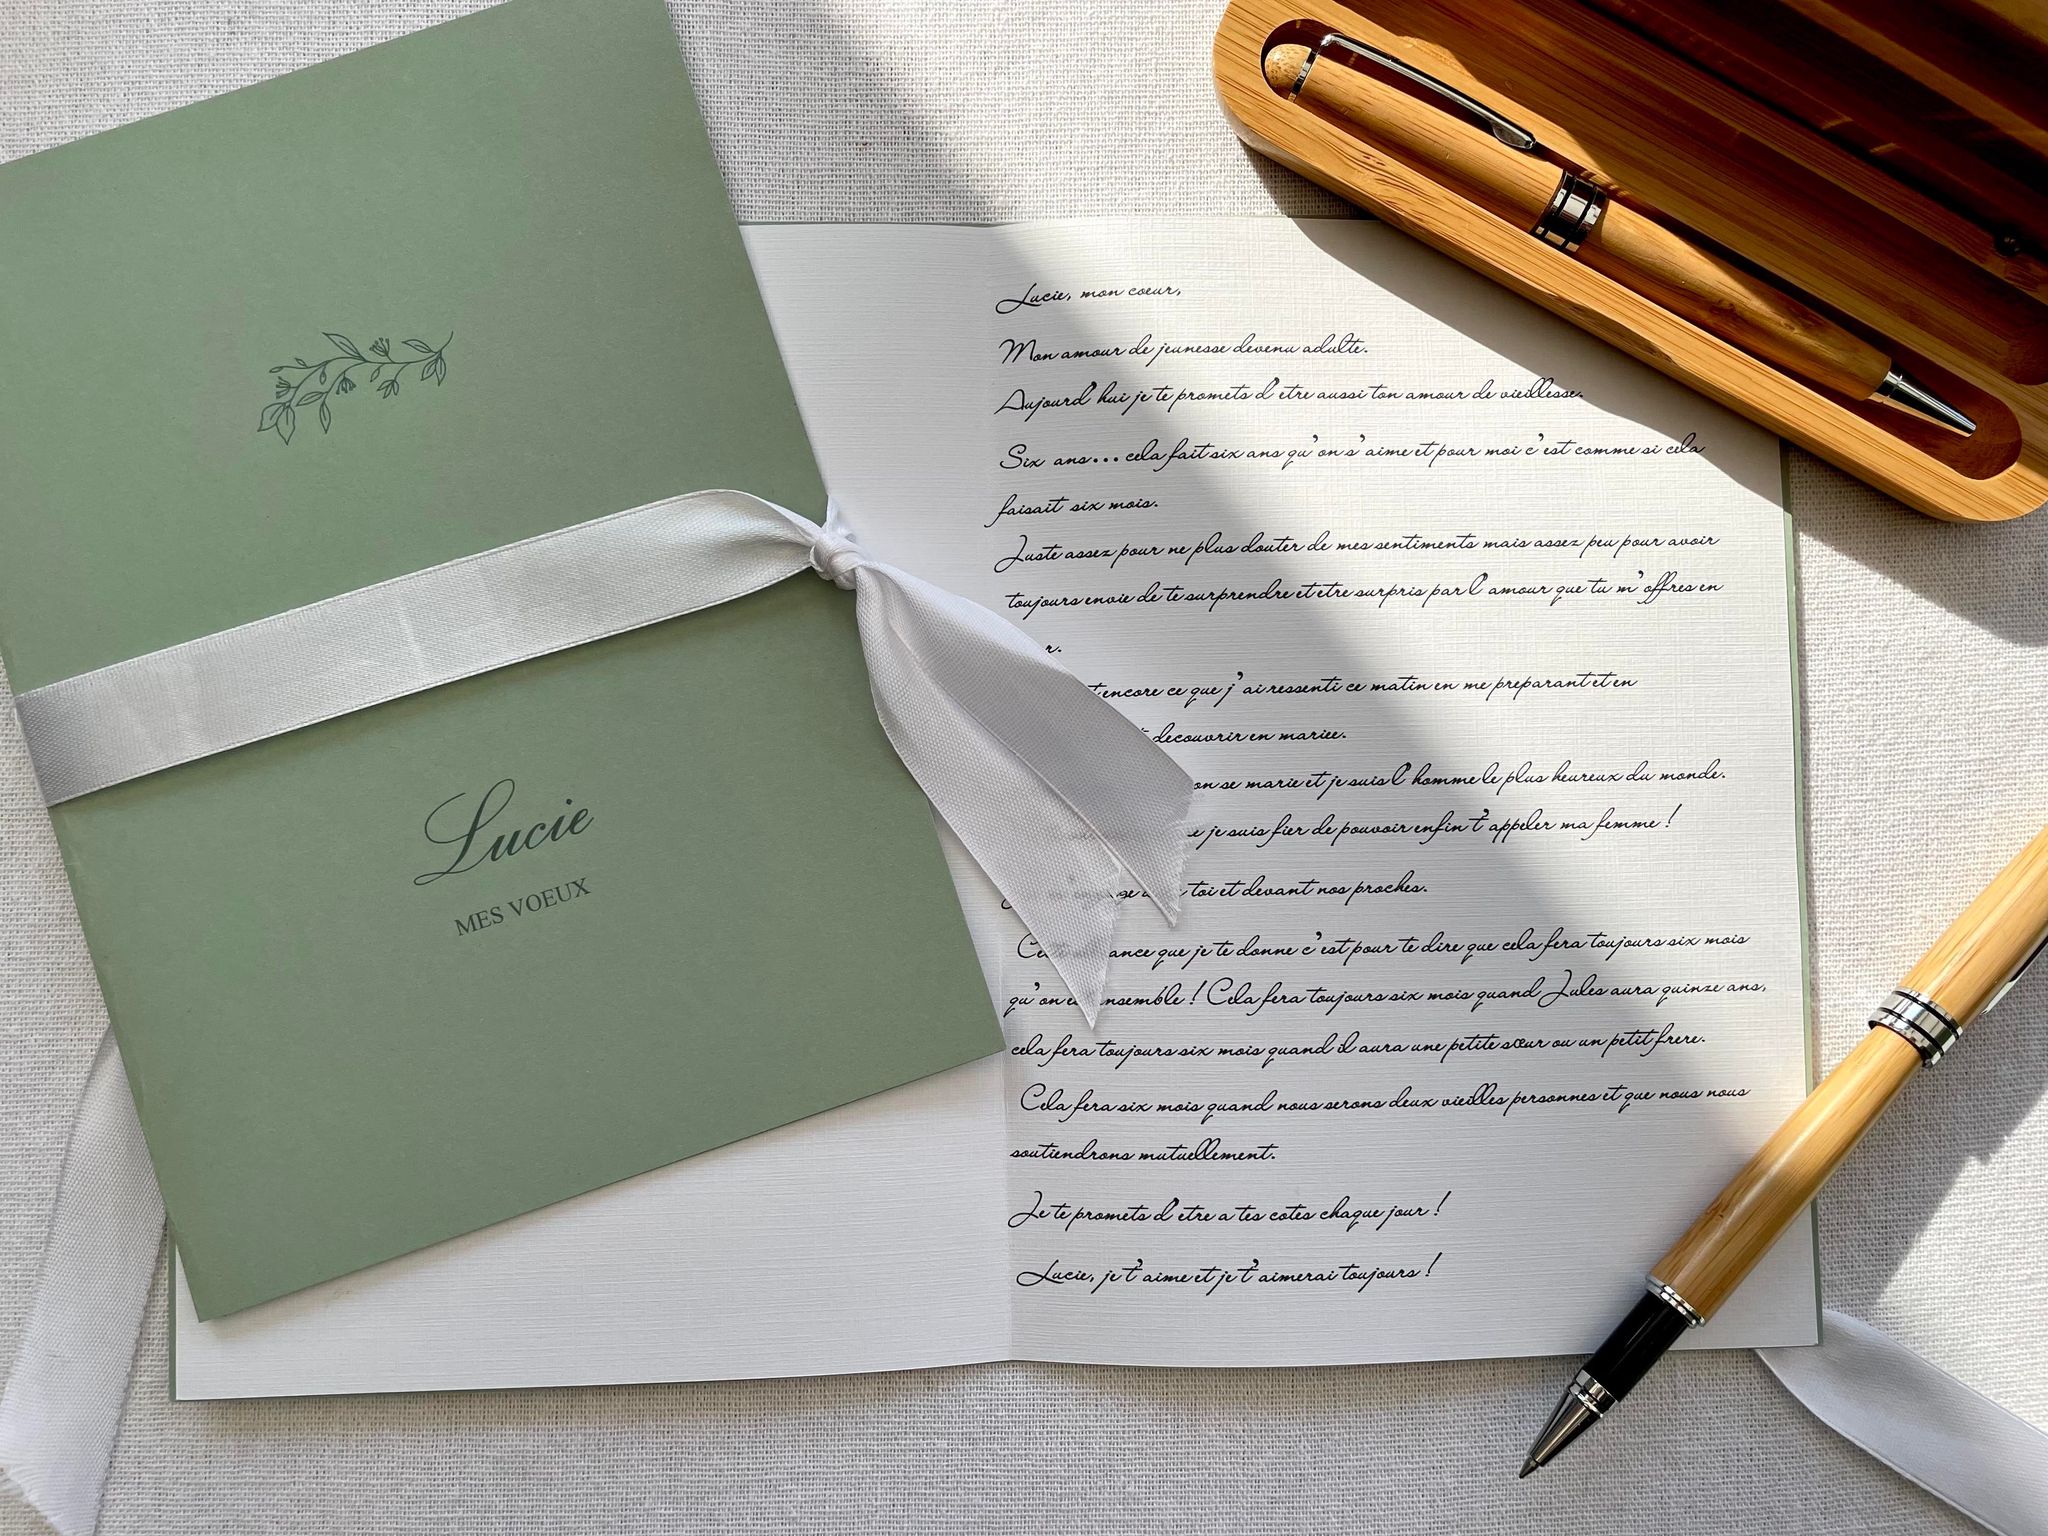 Lucie
MES VOEUX
Lucie, mon cœur,
Mon amour de jeunesse devenu adulte.
Aujourd'hui je te promets d'etre aussi ton amour de vieillesse.
Six ans... cela fait six ans qu'on s'aime et pour moi c'est comme si cela
faisait six mois.
Juste assez pour ne plus douter de mes sentiments mais assez peu pour avoir
toujours envie de te surprendre et etre surpris par l'amour que tu m'offres en
encore ce que j'ai ressenti ce matin en me preparant et en
decouvrir en mariee.
on se marie et je suis l'homme le plus heureux du monde.
je suis fier de pouvoir enfin t'appeler ma femme !
toi et devant nos proches.
que je te donne c'est pour te dire que cela fera toujours six mois
qu'on ! Cela fera toujours six mois quand Jules aura quinze ans,
cela fera toujours six mois quand il aura une petite sœur ou un petit frere.
Cela fera six mois quand nous serons deux vieilles personnes et que nous nous
soutiendrons mutuellement.
Je te promets d'etre a tes cotes chaque jour !
Lucie, je t'aime et je t'aimerai toujours !